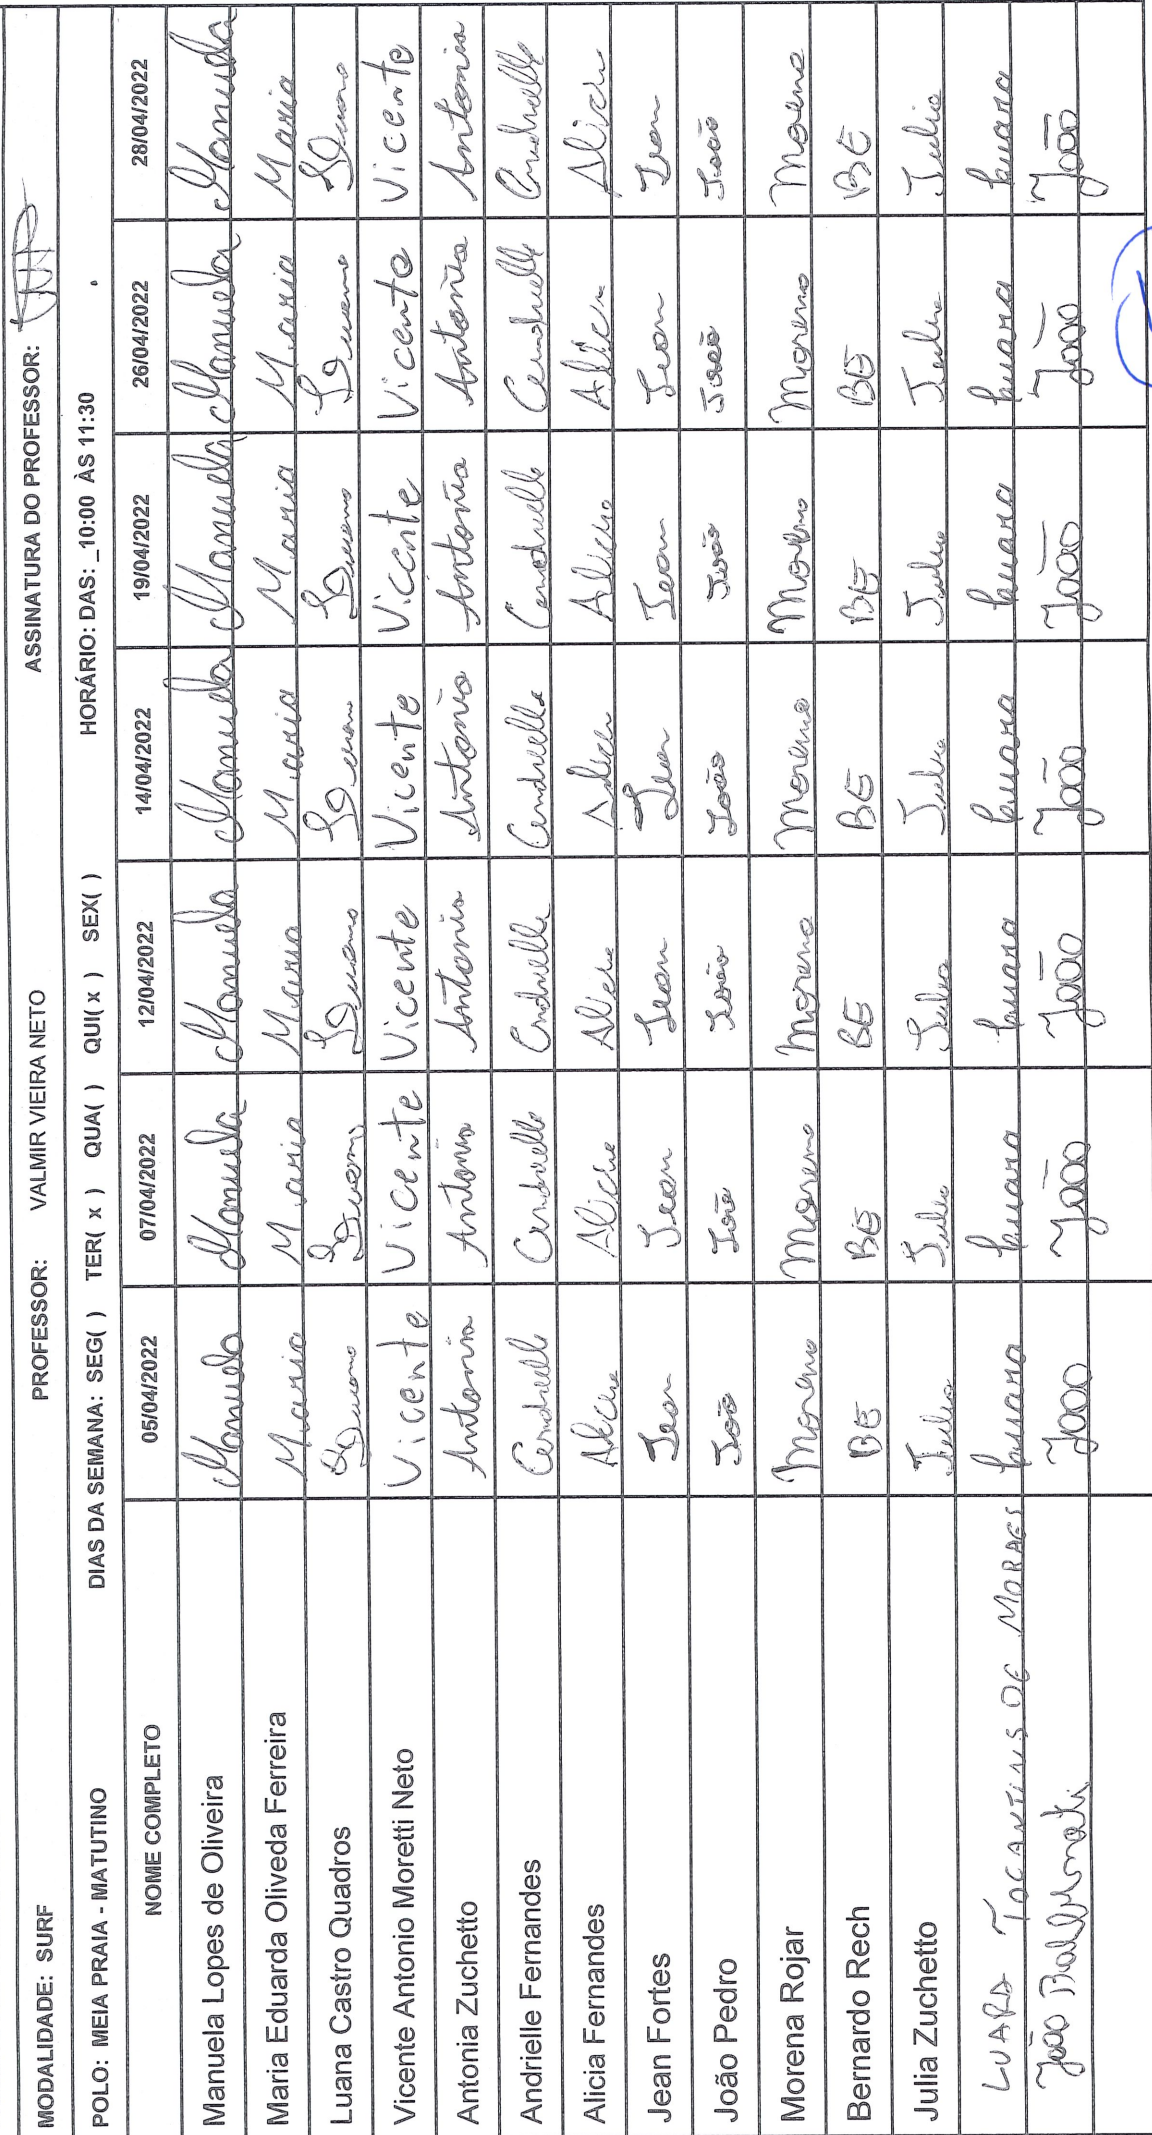 MODALIDADE: SURF PROFESSOR: VALMIR VIEIRA NETO ASSINATURA DO PROFESSOR:
POLO: MEIA PRAIA - MATUTINO DIAS DA SEMANA: SEG( ) TER( x ) QUA( ) QUI( x ) SEX( ) HORÁRIO: DAS: _10:00 ÀS 11:30
NOME COMPLETO 05/04/2022 07/04/2022 12/04/2022 14/04/2022 19/04/2022 26/04/2022 28/04/2022
Manuela Lopes de Oliveira Manuela Manuela Manuela Manuela Manuela Manuela Manuela
Maria Eduarda Oliveda Ferreira Maria Maria Maria Maria Maria Maria Maria
Luana Castro Quadros
Vicente Antonio Moretti Neto Vicente Vicente Vicente Vicente Vicente Vicente Vicente
Antonia Zuchetto Antonia Antonia Antonia Antonia Antonia Antonia Antonia
Andrielle Fernandes
Alicia Fernandes
Jean Fortes Jean Jean Jean Jean Jean Jean Jean
João Pedro João João João João João João João
Morena Rojar Morena Morena Morena Morena Morena Morena Morena
Bernardo Rech BE BE BE BE BE BE BE
Julia Zuchetto Julia Julia Julia Julia Julia Julia Julia
LUARA TOCANTINS DE MORAES Luara Luara Luara Luara Luara Luara Luara
João João João João João João João João